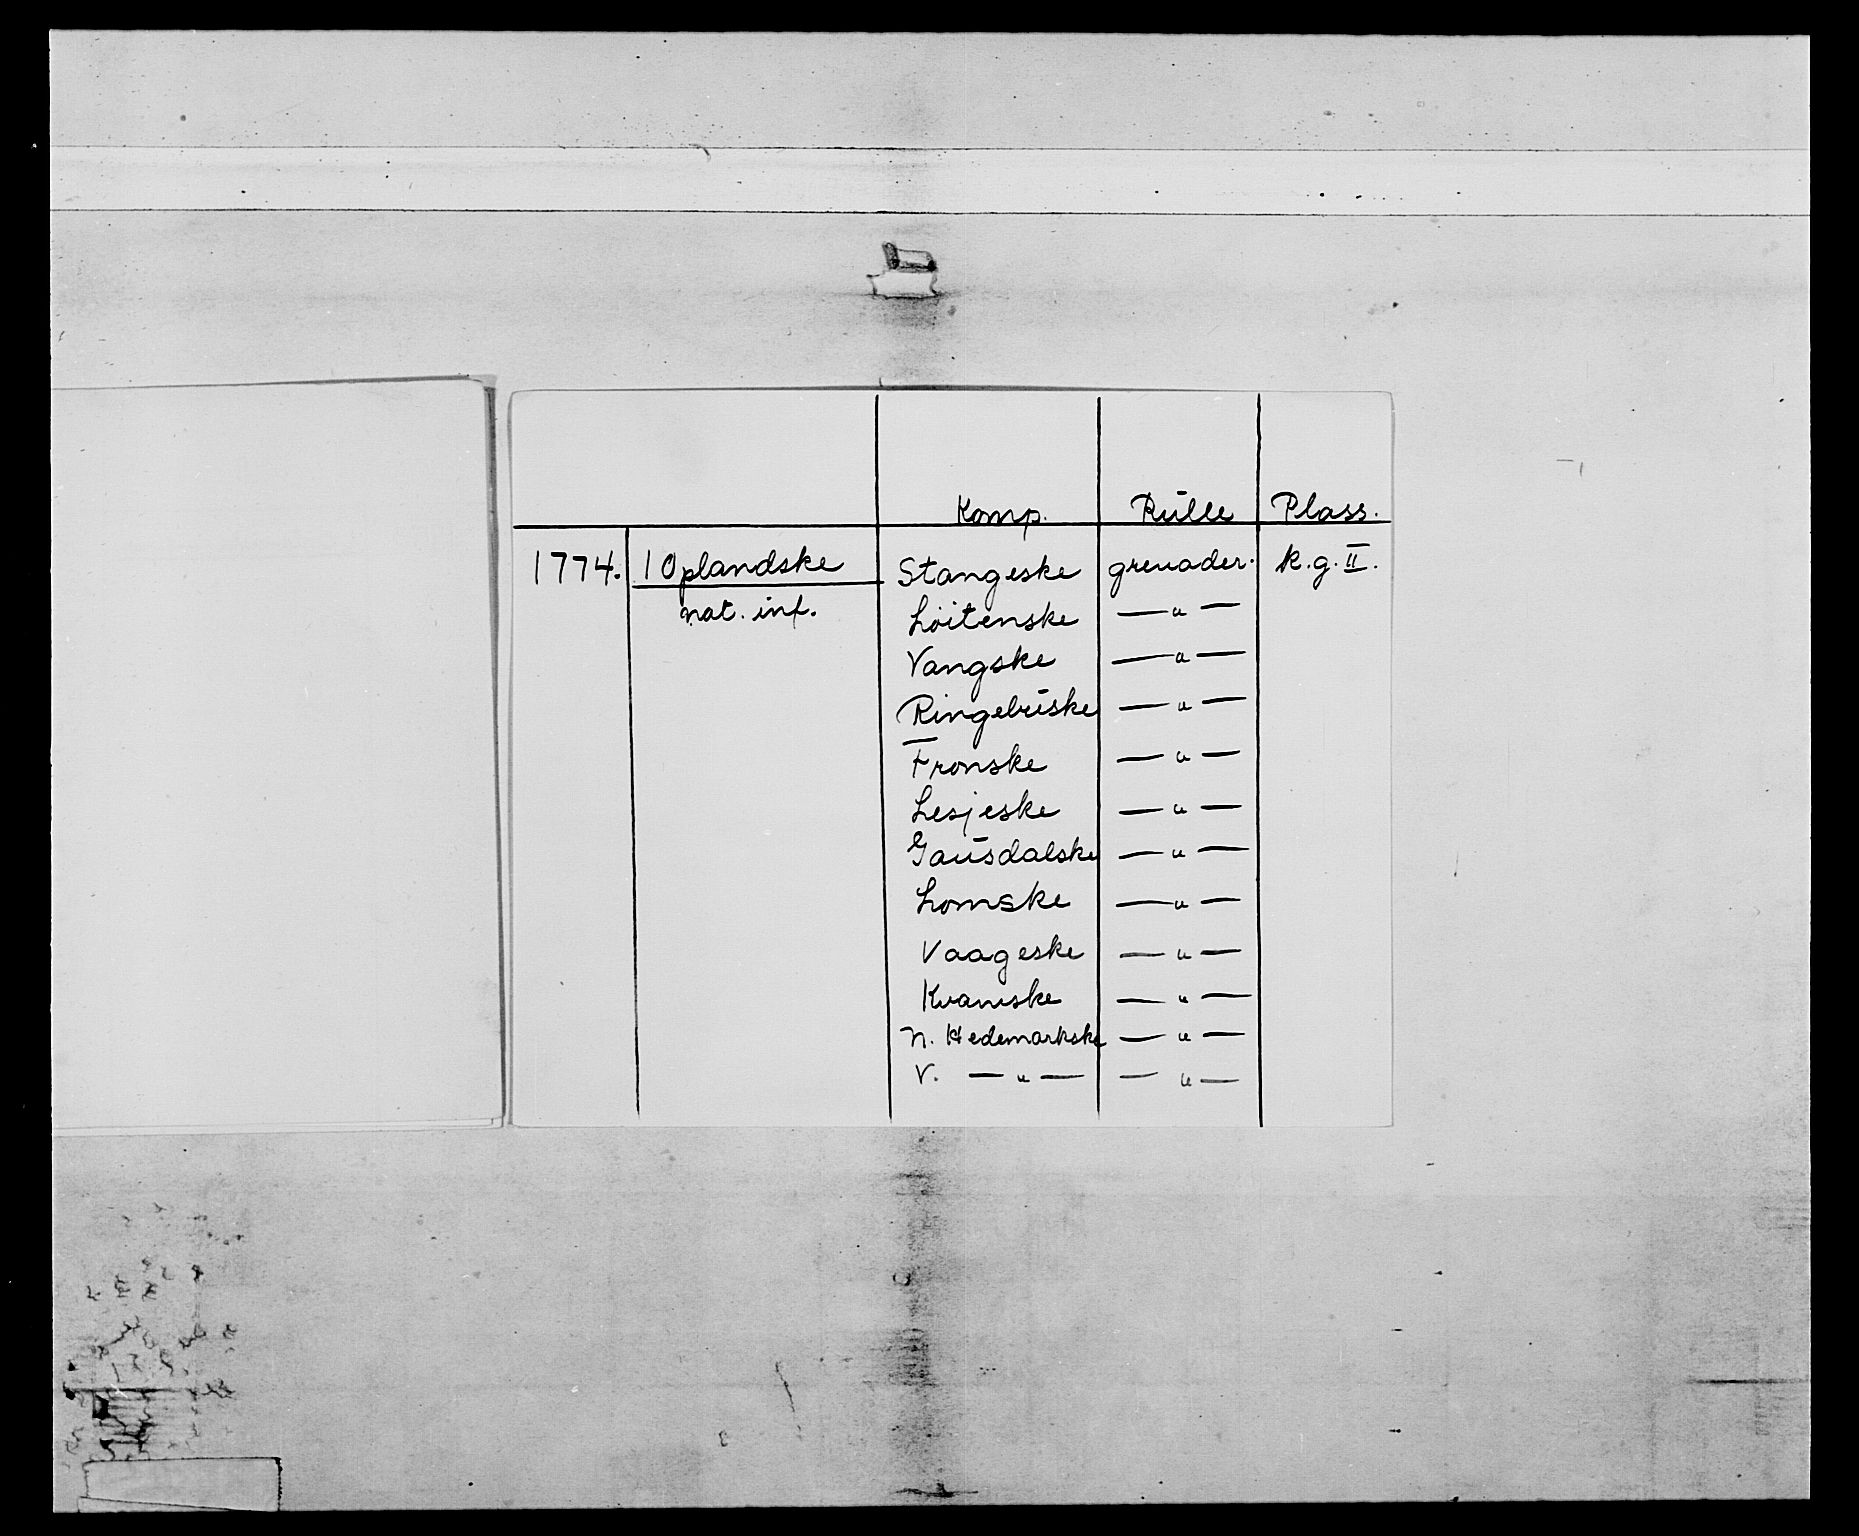 Komp. Rulle Plass.
1774. 1 Oplandske Stangeske grenader. k.g. II.
nat. inf. Löitenske —"—
Vangske —"—
Ringebuske —"—
Fronske —"—
Lesjeske —"—
Gausdalske —"—
Lomske —"—
Vaageske —"—
Kvamske —"—
N. Hedemarkske —"—
V. —"— —"—